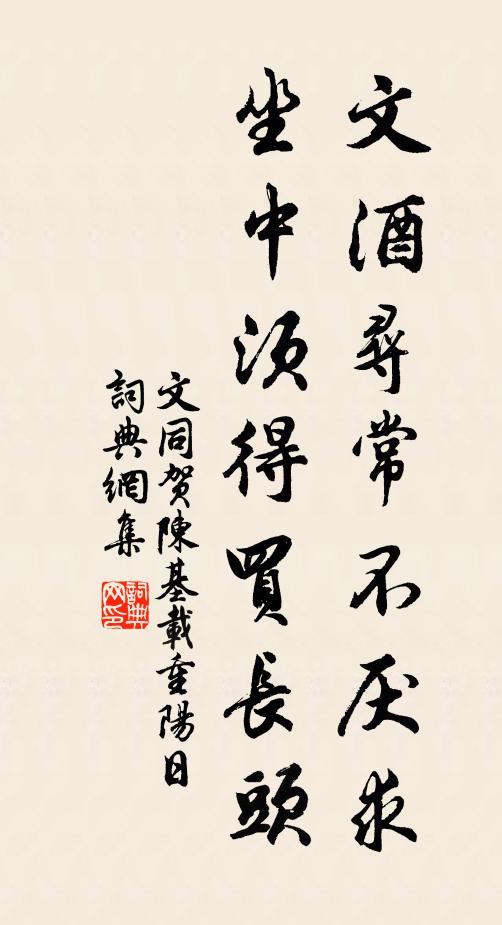 文酒尋常不厌求
坐中須得買長頭
文同贺陳基載重陽日
詞典網集
詞典网印